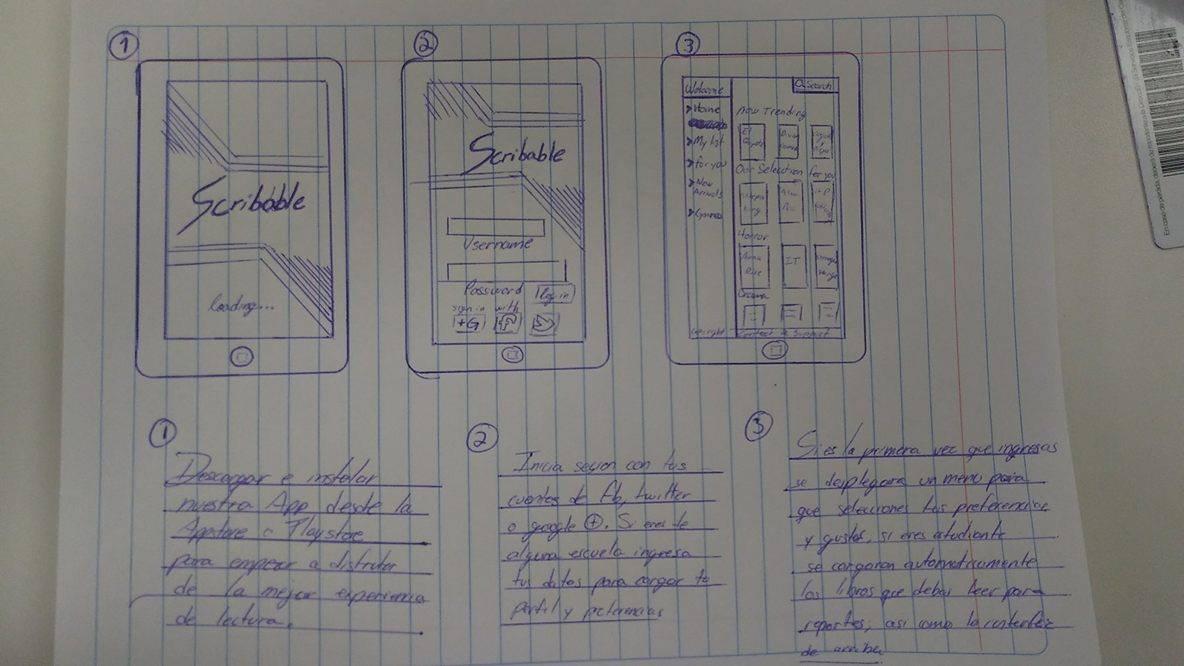 1
Scribable
loading...
2
Scribable
Username
Password
log in
sign in with
+G
3
Welcome
Search
Home
My list
For you
New
Arrivals
Now Trending
Our Selection for you
Horror
IT
Drama
Copyright
Contact & Support
1
Descargar e instalar
nuestra App desde la
Appstore o Playstore
para empezar a disfrutar
de la mejor experiencia
de lectura.
2
Inicia sesion con tus
cuentas de fb, twitter
o google +. Si eres de
alguna escuela ingresa
tus datos para cargar tu
perfil y preferencias
3
Si es la primera vez que ingresas
se desplegara un menu para
que selecciones tus preferencias
y gustos, si eres estudiante
se cargaran automaticamente
los libros que debas leer para
reportes, asi como la interfaz
de arriba